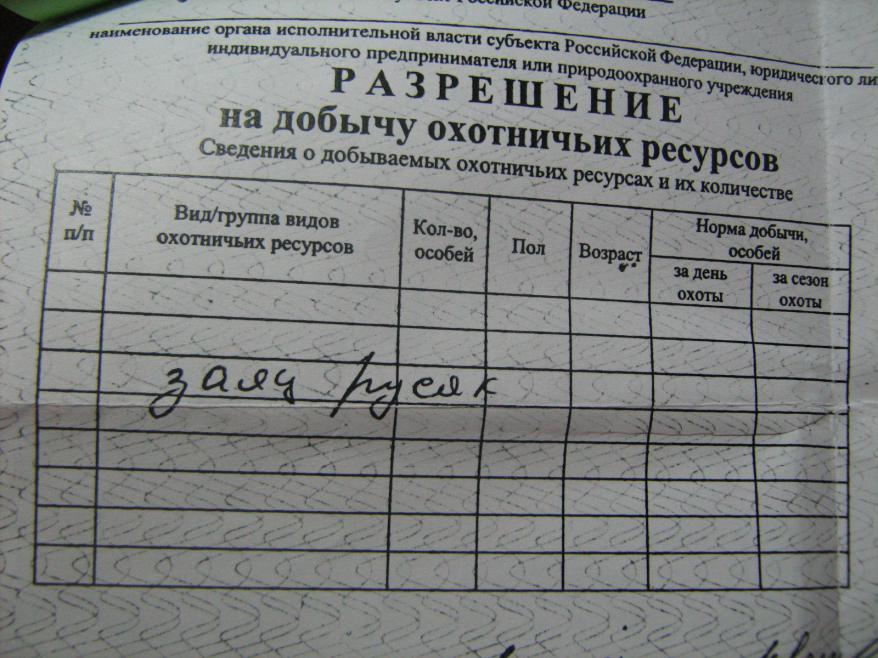 Российской Федерации
наименование органа исполнительной власти субъекта Российской Федерации, юридического ли
индивидуального предпринимателя или природоохранного учреждения
РАЗРЕШЕНИЕ
на добычу охотничьих ресурсов
Сведения о добываемых охотничьих ресурсах и их количестве
№ п/п
Вид/группа видов
охотничьих ресурсов
Кол-во,
особей
Пол
Возраст
Норма добычи,
особей
за день
охоты
за сезон
охоты
заяц русак